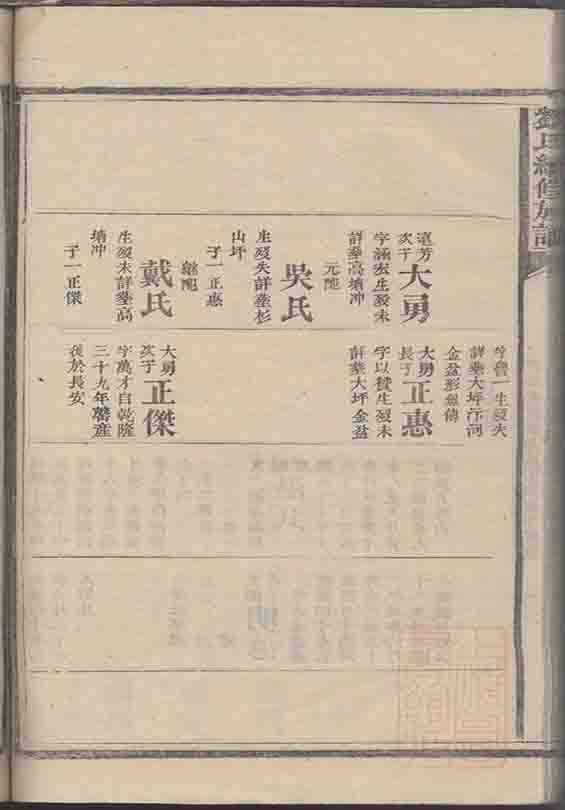 氏續修族譜
遠芳
次子
大勇
字涵宏生歿未
詳葬高塘冲
元配
吳氏
生歿失詳葬杉
山坪
子一正惠
繼配
戴氏
生歿未詳葬高
塘冲
子一正傑
一生歿失
詳葬大坪河
金盆形無傳
大勇
長子
正惠
字以贊生歿未
詳葬大坪金盆
大勇
次子
正傑
字萬才自乾隆
三十九年罄產
徙於長安